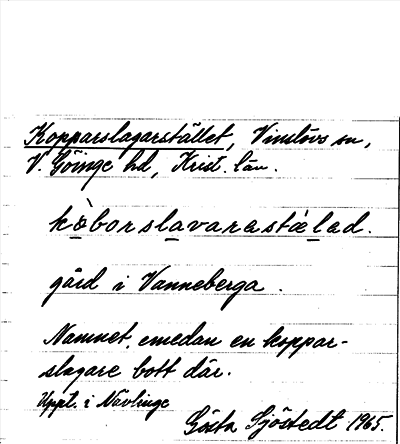 Kopparslagarstället, Vinslövs sn,
V. Göinge hd, Krist. län.
kòborslavarastæ̀lad.
gård i Vanneberga.
Namnet, emedan en koppar-
slagare bott där.
Uppt. i Nävlinge
Gösta Sjöstedt 1965.